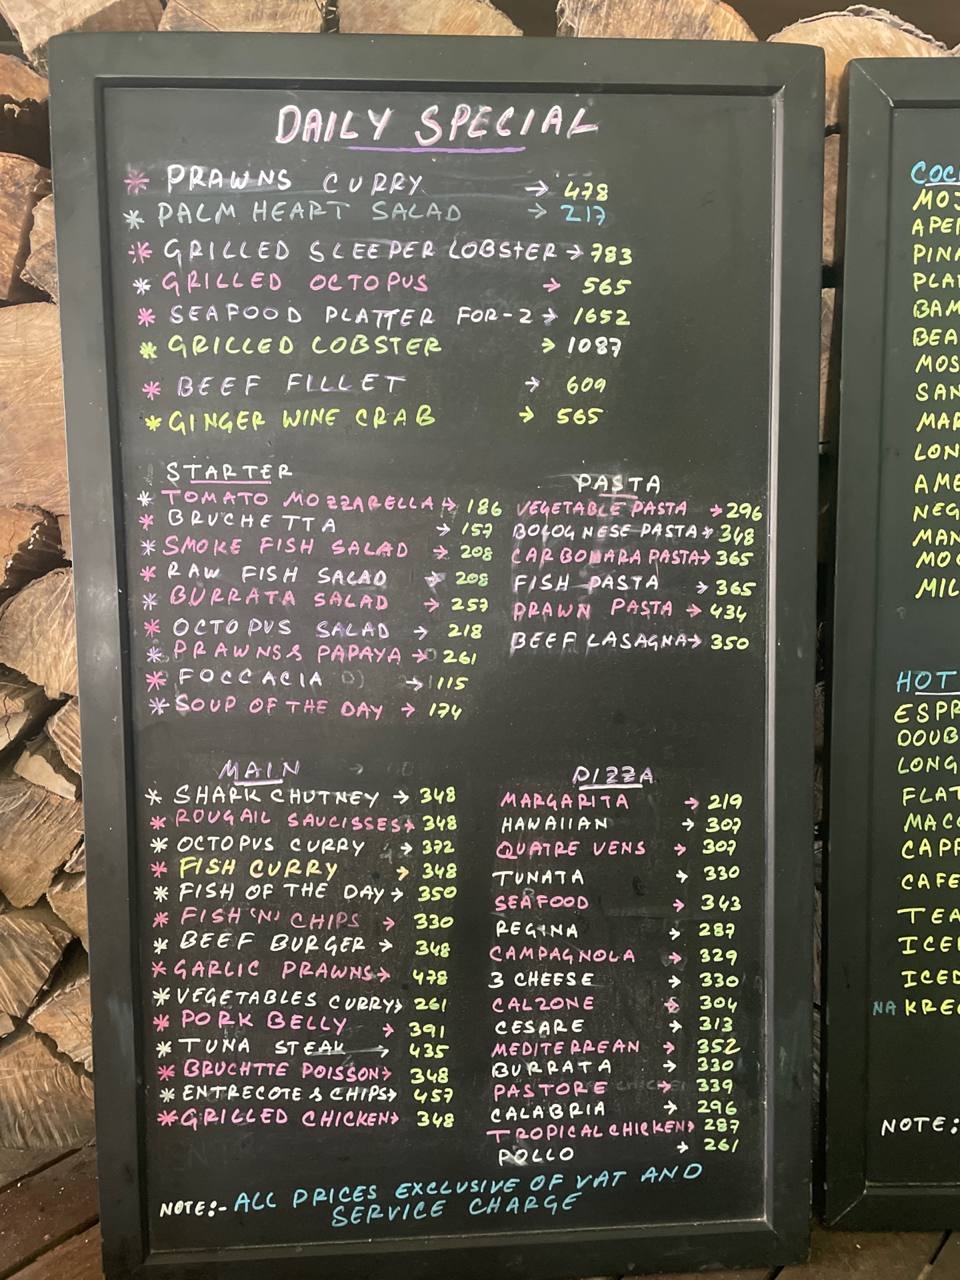 DAILY SPECIAL
* PRAWNS CURRY → 478
* PALM HEART SALAD → 217
* GRILLED SLEEPER LOBSTER → 783
* GRILLED OCTOPUS → 565
* SEAFOOD PLATTER FOR-2 → 1652
* GRILLED LOBSTER → 1087
* BEEF FILLET → 609
* GINGER WINE CRAB → 565
STARTER
* TOMATO MOZZARELLA → 186
* BRUCHETTA → 157
* SMOKE FISH SALAD → 208
* RAW FISH SALAD → 208
* BURRATA SALAD → 257
* OCTOPUS SALAD → 218
* PRAWNS & PAPAYA → 261
* FOCCACIA → 115
* SOUP OF THE DAY → 174
PASTA
VEGETABLE PASTA → 296
BOLOGNESE PASTA → 348
CARBOMARA PASTA → 365
FISH PASTA → 365
PRAWN PASTA → 434
BEEF LASAGNA → 350
MAIN
* SHARK CHUTNEY → 348
* ROUGAIL SAUCISSES → 348
* OCTOPUS CURRY → 372
* FISH CURRY → 348
* FISH OF THE DAY → 350
* FISH 'N' CHIPS → 330
* BEEF BURGER → 348
* GARLIC PRAWNS → 478
* VEGETABLES CURRY → 261
* PORK BELLY → 391
* TUNA STEAK → 435
* BRUCHTTE POISSON → 348
* ENTRECOTE & CHIPS → 457
* GRILLED CHICKEN → 348
PIZZA
MARGARITA → 219
HAWAIIAN → 307
QUATRE VENS → 307
TUNATA → 330
SEAFOOD → 343
REGINA → 287
CAMPAGNOLA → 329
3 CHEESE → 330
CALZONE → 304
CESARE → 313
MEDITERREAN → 352
BURRATA → 330
PASTORE → 339
CALABRIA → 296
TROPICAL CHICKEN → 287
POLLO → 261
NOTE:- ALL PRICES EXCLUSIVE OF VAT AND
SERVICE CHARGE
HOT
NA
NOTE: